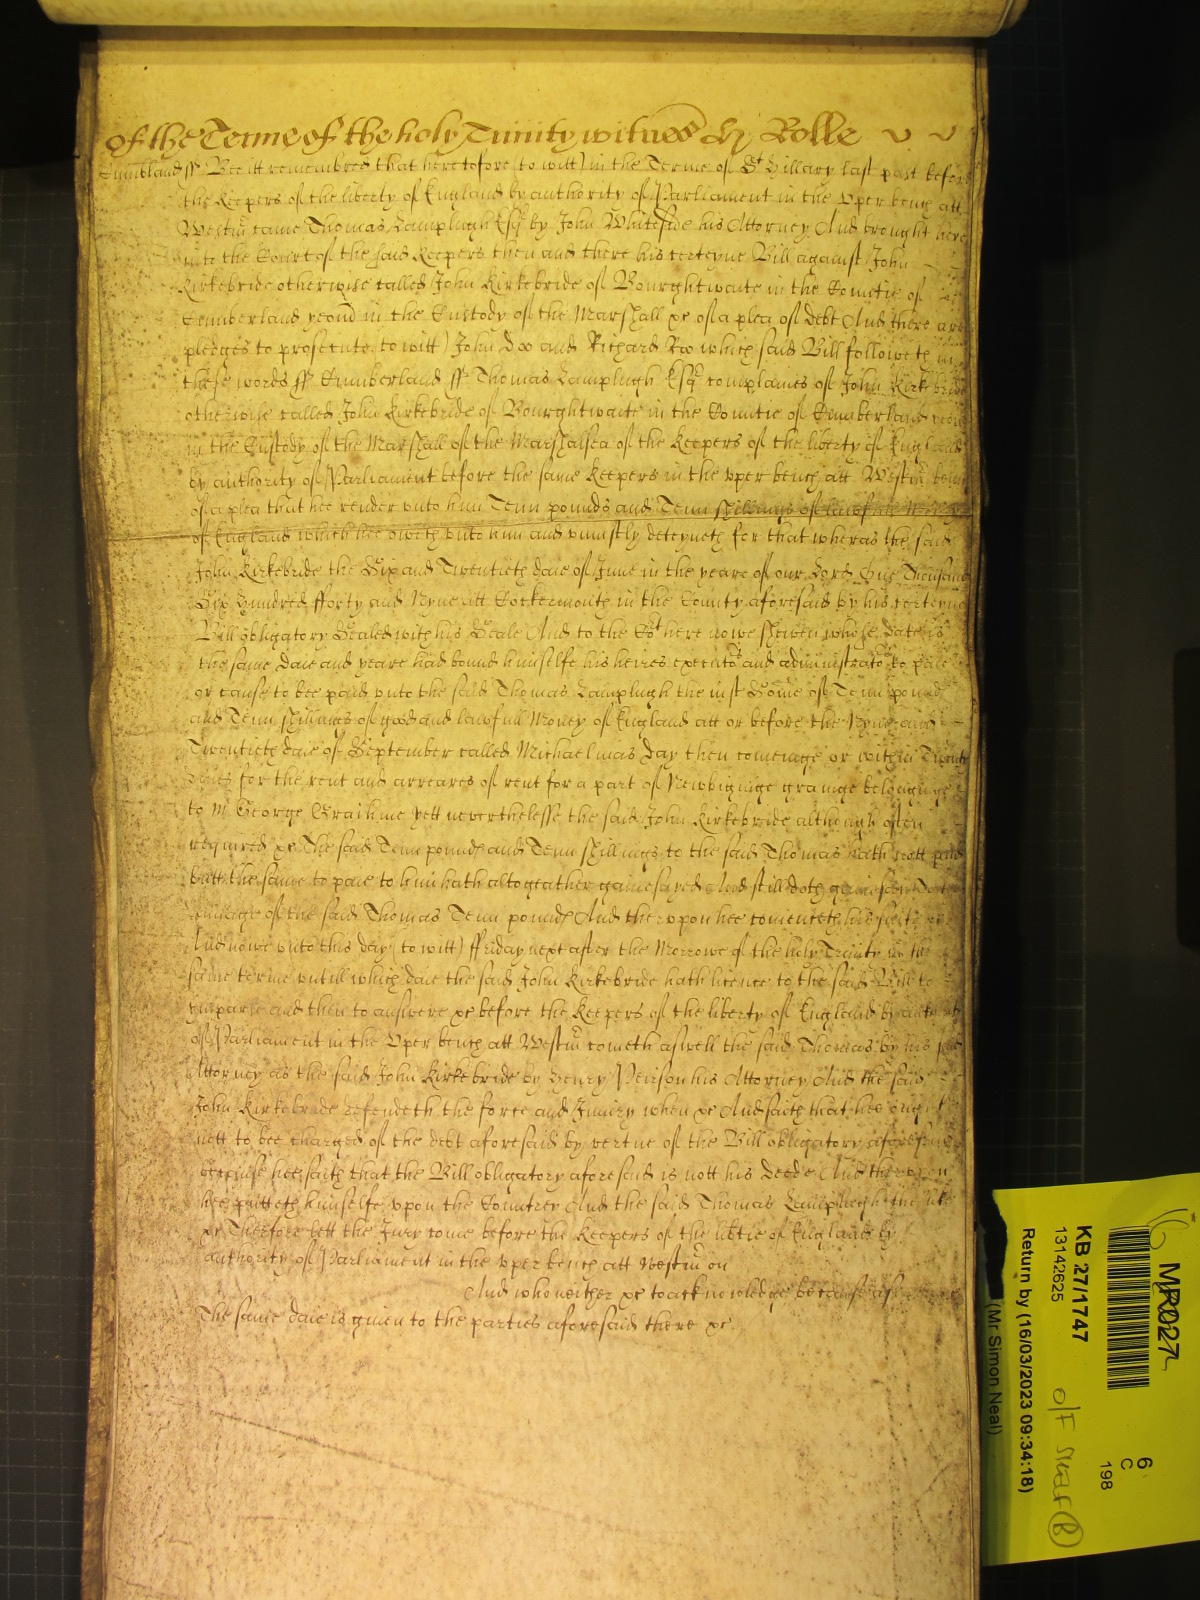 of the Terme of the holy Trinity witnes H Rolle
Cumbland ss Bee itt remembred that heretofore (to witt) in the Terme of St Hillary last past before
the Keepers of the liberty of England by authority of Parliament in the Vper bench att
Westm came Thomas Lamplugh Esqr by John Whiteside his Attorney And brought here
into the Court of the said Keepers then and there his certeyne Bill against John
Kirkebride otherwise called John Kirkebride of Bourghtwaite in the Comitie of
Cumberland yeom in the Custody of the Marshall &c of a plea of debt And there are
pledges to prosecute (to witt) John Doo and Richard Roo which said Bill followeth in
these words ss Cumberland ss Thomas Lamplugh Esqr complaines of John Kirkebride
otherwise called John Kirkebride of Bourghtwaite in the Comitie of Cumberland yeom
in the Custody of the Marshall of the Marshalsea of the Keepers of the liberty of England
by authority of Parliament before the same Keepers in the vper bench att Westm being
of a plea that hee render vnto him Tenn pounds and Tenn shillings of lawfull Money
of England which hee oweth vnto him and vniustly deteyneth for that wheras the said
John Kirkebride the Six and Twentieth daie of June in the yeare of our Lord One Thousand
Six Hundred fforty and Nyne att Cockermouth in the County aforesaid by his certeyne
Bill obligatory Sealed with his Seale And to the Cot here nowe shewen whose date is
the same daie and yeare had bound himselfe his heires executors and administrators to paie
or cause to bee paid vnto the said Thomas Lamplugh the iust Some of Tenn pounds
and Tenn shillings of good and lawfull Money of England att or before the Nyne and
Twentieth daie of September called Michaelmas day then comeinge or within Twenty
daies for the rent and arreares of rent for a part of Newbiginge grainge belonginge
to Mr George Graihme yett neverthelesse the said John Kirkebride although often
required &c The said Tenn pounds and Tenn shillings to the said Thomas hath nott paid
butt the same to paie to him hath altogeather gainesayed And still doth gainesay To the
damage of the said Thomas Tenn pounds And thervpon hee comenceth his suite &c
And nowe vnto this day (to witt) ffriday next after the Morrowe of the holy Trinity in the
same terme vntill which daie the said John Kirkebride hath licence to the said Bill to
imparle and then to answere &c before the Keepers of the liberty of England by authority
of Parliament in the Vper bench att Westm cometh aswell the said Thomas by his said
Attorney as the said John Kirkebride by Henry Peirson his Attorney And the said
John Kirkebride defendeth the force and Iniury when &c And saith that hee ought
nott to bee charged of the debt aforesaid by vertue of the Bill obligatory aforesaid
because hee saith that the Bill obligatory aforesaid is nott his deede And thervpon
hee putteth himselfe vpon the Countrey And the said Thomas Lamplugh the like
&c Therfore lett the Iury come before the Keepers of the libtie of England by
authority of Parliament in the vper bench att Westm on
And who neither &c to acknowledge because aswell
The same daie is giuen to the parties aforesaid there &c
16
MR027
6
C
198
KB 27/1747
13142625
Return by (16/03/2023 09:34:18)
(Mr Simon Neal)